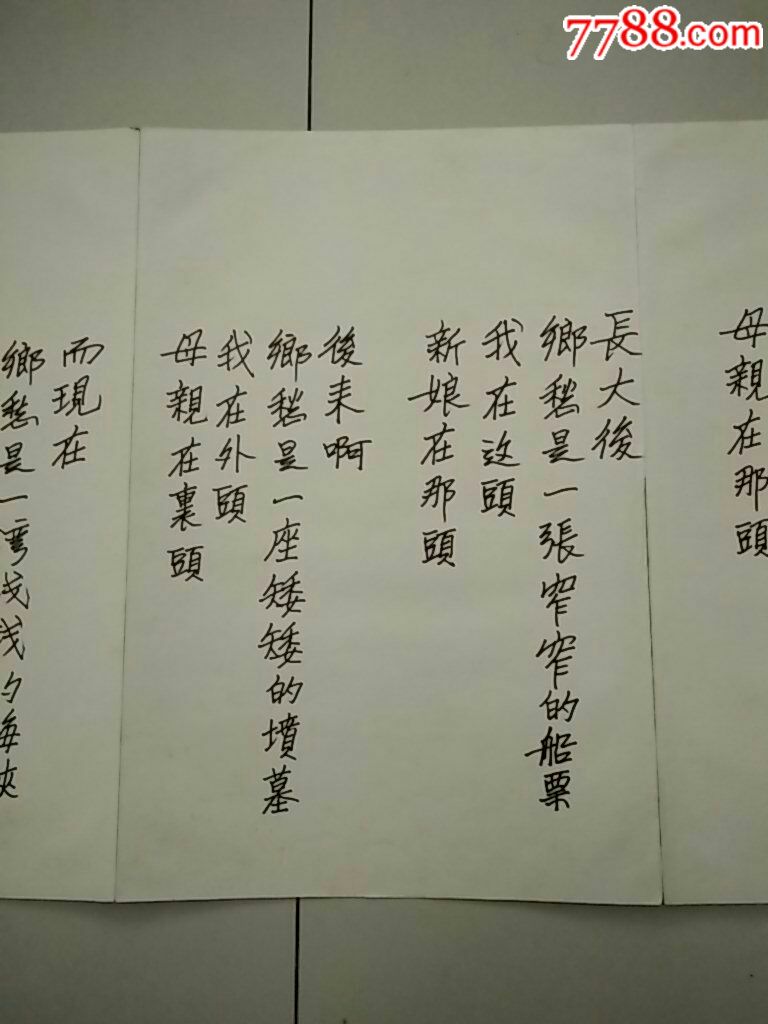 7788.com
母親在那頭
長大後
鄉愁是一張窄窄的船票
我在这頭
新娘在那頭
後来啊
鄉愁是一座矮矮的墳墓
我在外頭
母親在裏頭
而現在
鄉愁是一弯浅浅的海峡